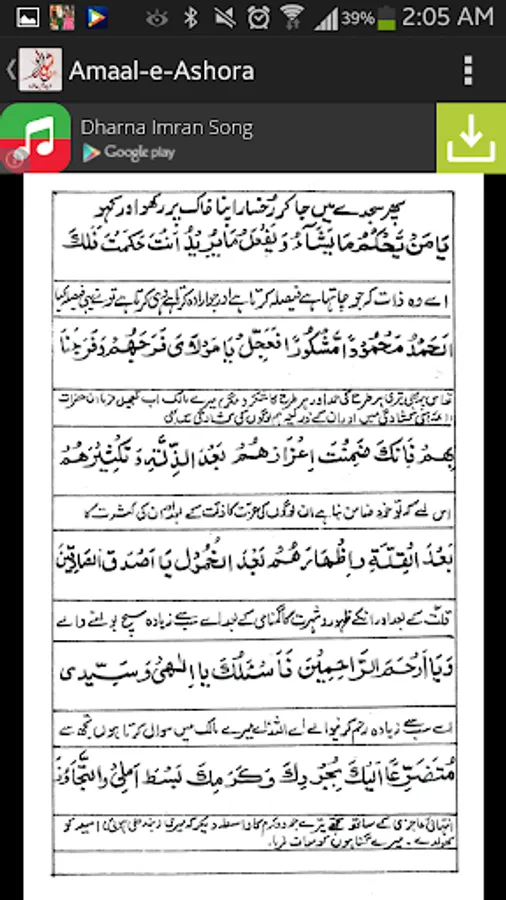 39% 2:05 AM
Amaal-e-Ashora
Dharna Imran Song
Google play
پھر سجدے میں جا کر رخسار اپنا خاک پر رکھو اور کہو
يَا مَنْ يَّحْكُمُ مَا يَشَآءُ وَيَفْعَلُ مَا يُرِيْدُ اَنْتَ حَكَمْتَ فَلَكَ
اے وہ ذات کہ جو چاہتا ہے فیصلہ کرتا ہے اور جو ارادہ کرتا ہے وہی کرتا ہے تو نے ہی فیصلہ کیا
الْحَمْدُ مَحْمُوْدًا مَّشْكُوْرًا فَعَجِّلْ يَا مَوْلَاىَ فَرَجَهُمْ وَفَرَجَنَا
بِهِمْ فَاِنَّكَ ضَمِنْتَ اِعْزَازَهُمْ بَعْدَ الذِّلَّةِ وَتَكْثِيْرَهُمْ
اس لئے کہ تو خود ضامن بنا ہے ان لوگوں کی عزت کا ذلت کے بعد اور ان کی کثرت کا
بَعْدَ الْقِلَّةِ وَاِظْهَارَهُمْ بَعْدَ الْخُمُوْلِ يَا اَصْدَقَ الصَّادِقِيْنَ
قلت کے بعد اور انکے ظہور و شہرت کا گمنامی کے بعد اے سب سے زیادہ سچ بولنے والے
وَيَا اَرْحَمَ الرَّاحِمِيْنَ فَاَسْئَلُكَ يَا اِلٰهِىْ وَسَيِّدِىْ
اے سب سے زیادہ رحم کرنیوالے اے اللہ اے میرے مالک میں سوال کرتا ہوں تجھ سے
مُتَضَرِّعًا اِلَيْكَ بِجُوْدِكَ وَكَرَمِكَ بَسْطَ اَمَلِىْ وَالتَّجَاوُزَ
انتہائی عاجزی کے ساتھ تجھے تیرے جود و کرم کا واسطہ دیکر کہ میری امید کو
کھولدے۔ میرے گناہوں کو معاف فرما۔